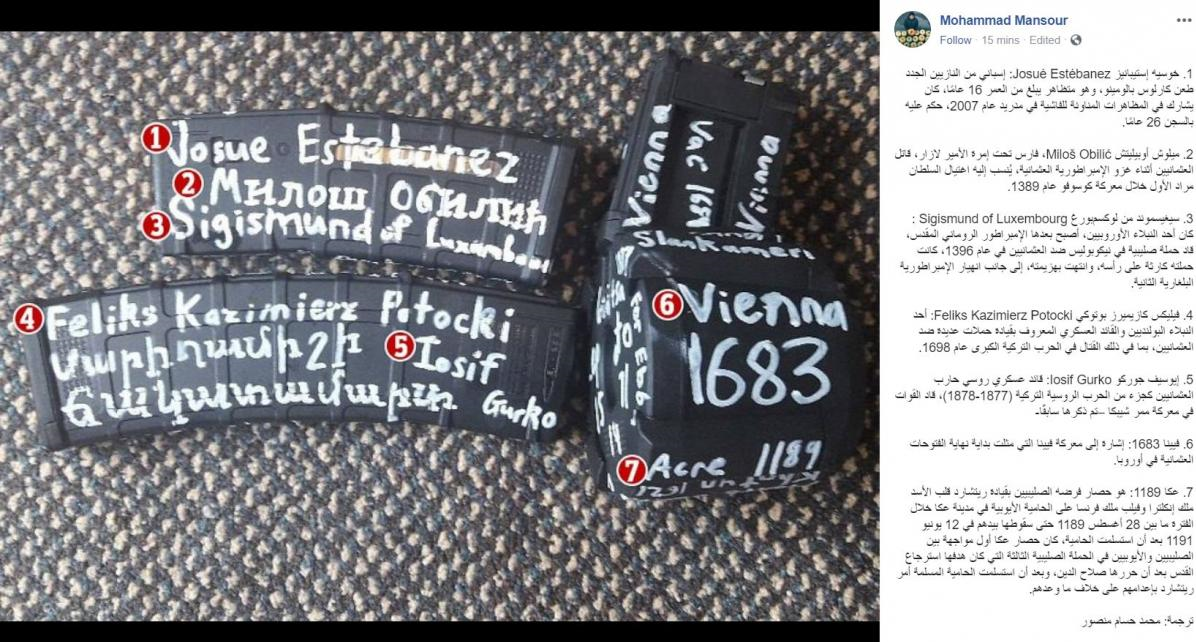 1 Josue Estebanez
2 Милош Обилић
3 Sigismund of Luxembourg
4 Feliks Kazimierz Potocki
5 Iosif
Gurko
Vienna
Vienna
6 Vienna
1683
7 Acre 1189
Mohammad Mansour
Follow · 15 mins · Edited ·
1. خوسيه إستيبانيز Josué Estébanez: إسباني من النازيين الجدد
طعن كارلوس بالومينو، وهو متظاهر يبلغ من العمر 16 عامًا، كان
يشارك في المظاهرات المناوئة للفاشية في مدريد عام 2007، حكم عليه
بالسجن 26 عامًا.
2. ميلوش أوبيليتش Miloš Obilić، فارس تحت إمرة الأمير لازار، قاتل
العثمانيين أثناء غزو الإمبراطورية العثمانية، يُنسب إليه اغتيال السلطان
مراد الأول خلال معركة كوسوفو عام 1389.
3. سيغيسموند من لوكسمبورغ Sigismund of Luxembourg :
كان أحد النبلاء الأوروبيين، أصبح بعدها الإمبراطور الروماني المقدس،
قاد حملة صليبية في نيكوبوليس ضد العثمانيين في عام 1396، كانت
حملته كارثة على رأسه، وانتهت بهزيمته، إلى جانب انهيار الإمبراطورية
البلغارية الثانية.
4. فيليكس كازيميرز بوتوكي Feliks Kazimierz Potocki: أحد
النبلاء البولنديين والقائد العسكري المعروف بقيادة حملات عديدة ضد
العثمانيين، بما في ذلك القتال في الحرب التركية الكبرى عام 1698.
5. إيوسيف جوركو Iosif Gurko: قائد عسكري روسي حارب
العثمانيين كجزء من الحرب الروسية التركية (1877-1878)، قاد القوات
في معركة ممر شيبكا –تم ذكرها سابقًا-
6. فيينا 1683: إشارة إلى معركة فيينا التي مثلت بداية نهاية الفتوحات
العثمانية في أوروبا.
7. عكا 1189: هو حصار فرضه الصليبيين بقيادة ريتشارد قلب الأسد
ملك إنكلترا وفيلب ملك فرنسا على الحامية الأيوبية في مدينة عكا خلال
الفترة ما بين 28 أغسطس 1189 حتى سقوطها بيدهم في 12 يونيو
1191 بعد أن استسلمت الحامية، كان حصار عكا أول مواجهة بين
الصليبيين والأيوبيين في الحملة الصليبية الثالثة التي كان هدفها استرجاع
القدس بعد أن حررها صلاح الدين، وبعد أن استسلمت الحامية المسلمة أمر
ريتشارد بإعدامهم على خلاف ما وعدهم.
ترجمة: محمد حسام منصور